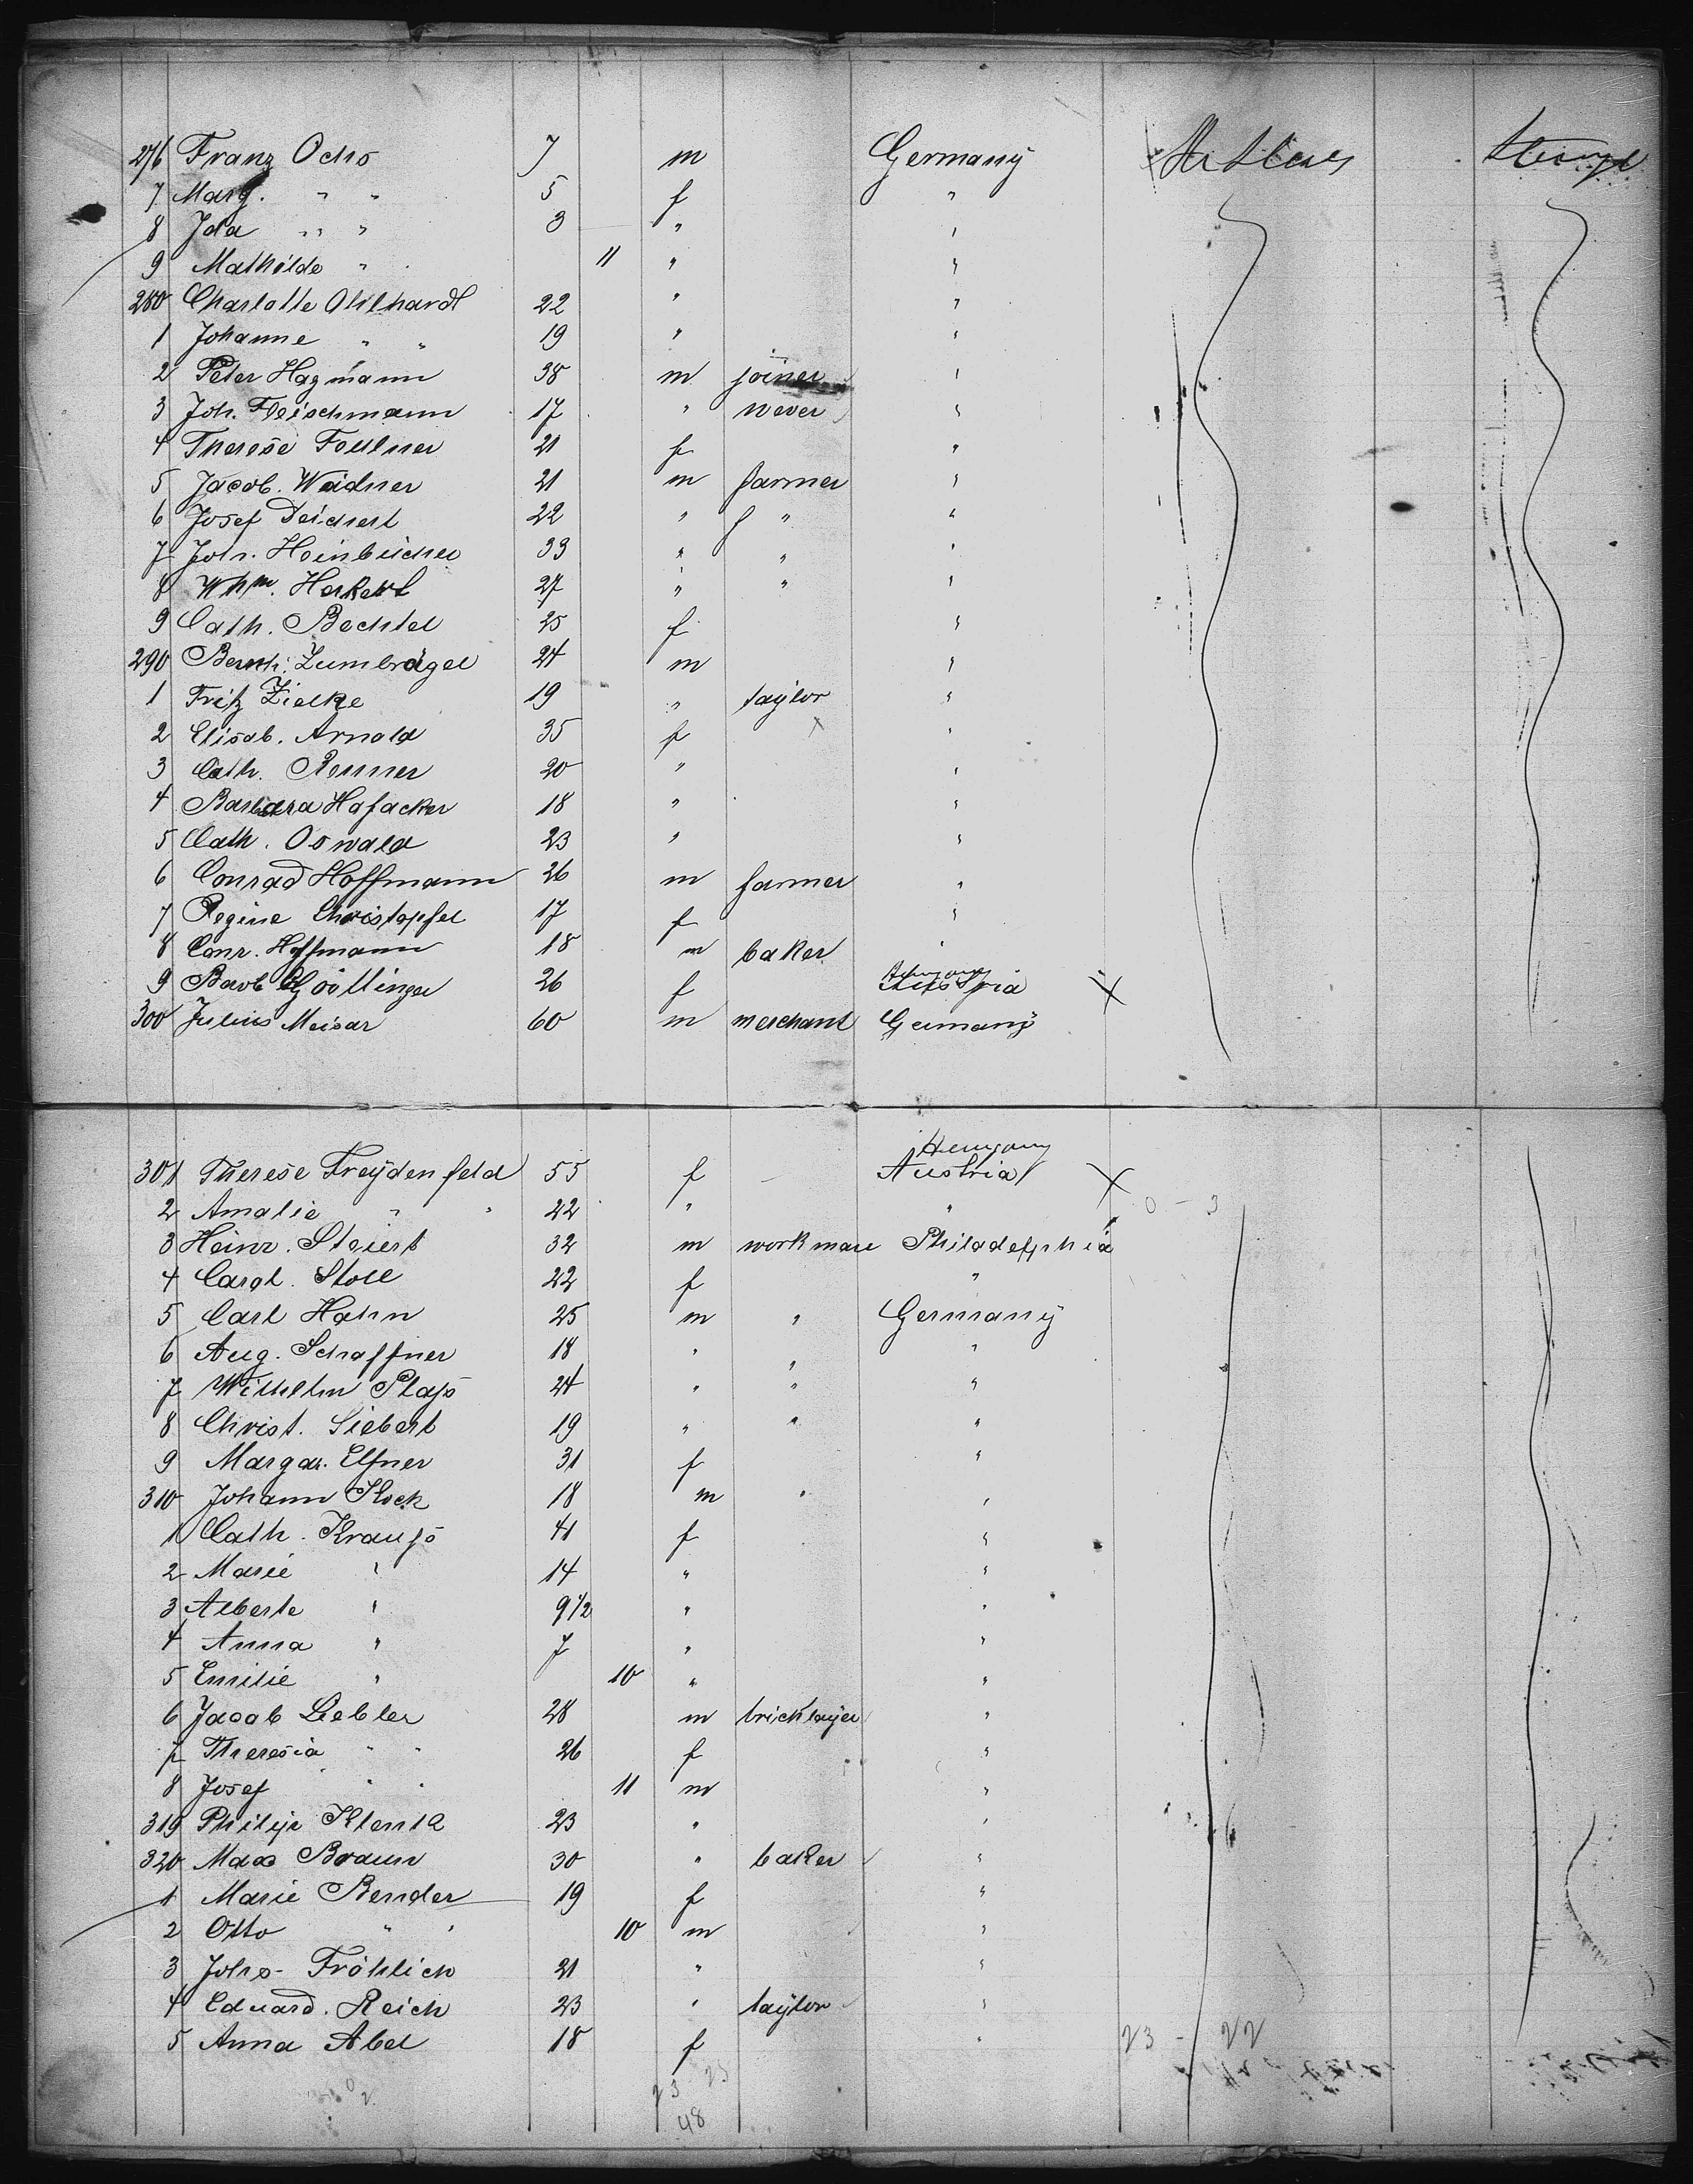 276 Franz Ochs 7 m Germany U States Steerage
7 Marg. " " 5 f "
8 Ida " " 3 " "
9 Mathilde " 11 " "
280 Charlotte 22 " "
1 Johanne " " 19 " "
2 Peter Hagmann 38 m joiner "
3 Joh. Fleischmann 17 " wever "
4 Therese 21 f "
5 Jacob. Weidner 21 m farmer "
6 Josef Deichert 22 " " "
7 Joh. Heinbücher 33 " " "
8 Whm. Herkert 27 " " "
9 Cath. Bechtel 25 f "
290 Bernh. Zumbrägel 24 m "
1 Fritz Zielke 19 " taylor "
2 Elisab. Arnold 35 f "
3 Cath. Renner 20 " "
4 Barbara Hafacker 18 " "
5 Cath. Oswald 23 " "
6 Conrad Hoffmann 26 m farmer "
7 Regine Christopfel 17 f "
8 Conr. Hoffmann 18 m baker "
9 Barb Göttinger 26 f Austria X
300 Julius Meisar 60 m merchant Germany
Hungary
301 Therese Freydenfeld 55 f Austria X
2 Amalie " " 22 " " 0 - 3
3 Heinr. Steiert 32 m workman Philadelphia
4 Carol. Stoll 22 f "
5 Carl Hahn 25 m " Germany
6 Aug. Schaffner 18 " " "
7 Wilhelm Plass 24 " " "
8 Christ. Siebert 19 " " "
9 Margar. Elfner 31 f "
310 Johann Kock 18 m " "
1 Cath. Krauss 41 f "
2 Marie " 14 " "
3 Alberte " 9 1/2 " "
4 Anna " 7 " "
5 Emilie " 10 " "
6 Jacob Liebler 28 m bricklayer "
7 Theresia " " 26 f "
8 Josef " " 11 m "
319 Philip Klenk 23 " "
320 Max Braun 30 " baker "
1 Marie Bender 19 f "
2 Otto " " 10 m "
3 Johs Fröhlich 21 " "
4 Eduard. Reich 23 " taylor "
5 Anna Abel 18 f " 23 - 22
23 25
48